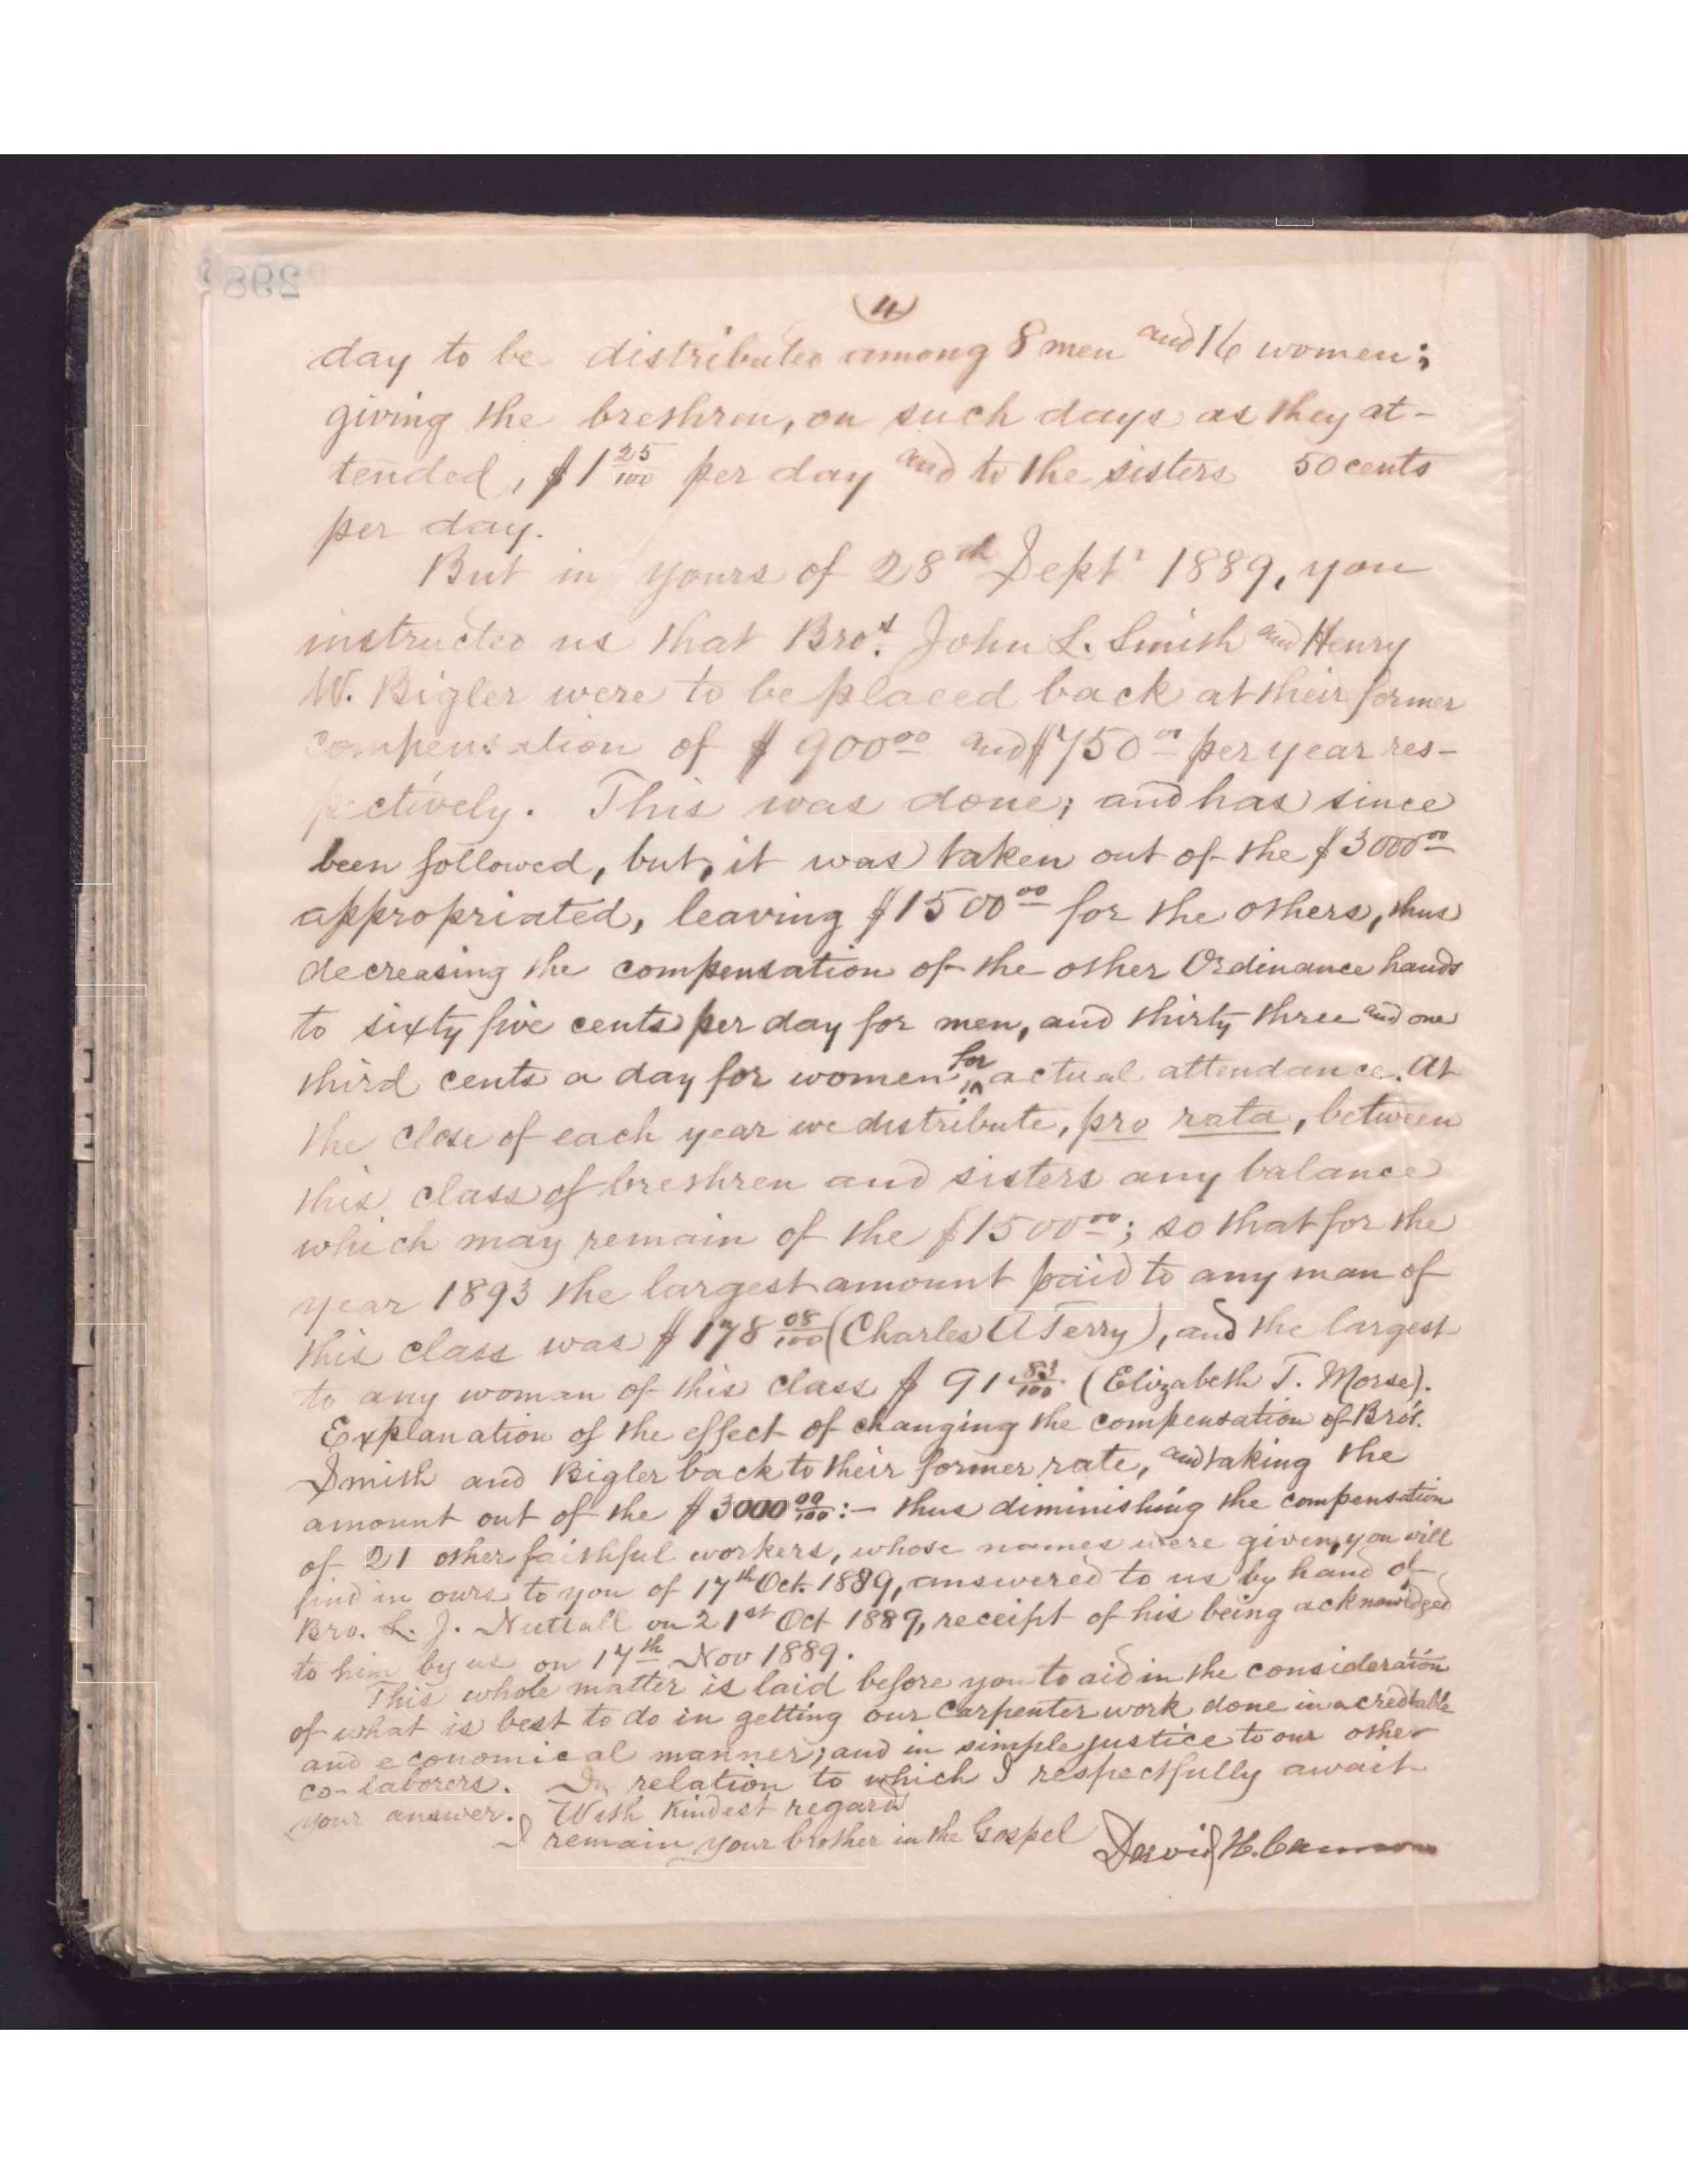 (4)
day to be distributed among 8 men and 16 women;
giving the brethren, on such days as they at-
tended, $1 25/100 per day and to the sisters 50 cents
per day.
But in yours of 28th Sept 1889, you
instructed us that Bros. John L. Smith and Henry
W. Bigler were to be placed back at their former
compensation of $900 00 and $750 00 per year res-
pectively. This was done; and has since
been followed, but, it was taken out of the $3000 00
appropriated, leaving $1500 00 for the others, thus
decreasing the compensation of the other Ordinance hands
to sixty five cents per day for men, and thirty three and one
third cents a day for women for actual attendance. At
the close of each year we distribute, pro rata, between
this class of brethren and sisters any balance
which may remain of the $1500 00; so that for the
year 1893 the largest amount paid to any man of
this class was $178 08/100 (Charles A Terry), and the largest
to any woman of this class $91 83/100. (Elizabeth T. Morse).
Explanation of the effect of changing the compensation of Bros.
Smith and Bigler back to their former rate, and taking the
amount out of the $3000 00/100:- thus diminishing the compensation
of 21 other faithful workers, whose names were given, you will
find in ours to you of 17th Oct. 1889, answered to us by hand of
Bro. L. J. Nuttall on 21st Oct 1889, receipt of his being acknowldged
to him by us on 17th Nov 1889.
This whole matter is laid before you to aid in the consideration
of what is best to do in getting our carpenter work done in a creditable
and economical manner; and in simple justice to our other
co-laborers. In relation to which I respectfully await
your answer. With Kindest regards
I remain your brother in the Gospel David H. Cannon
298